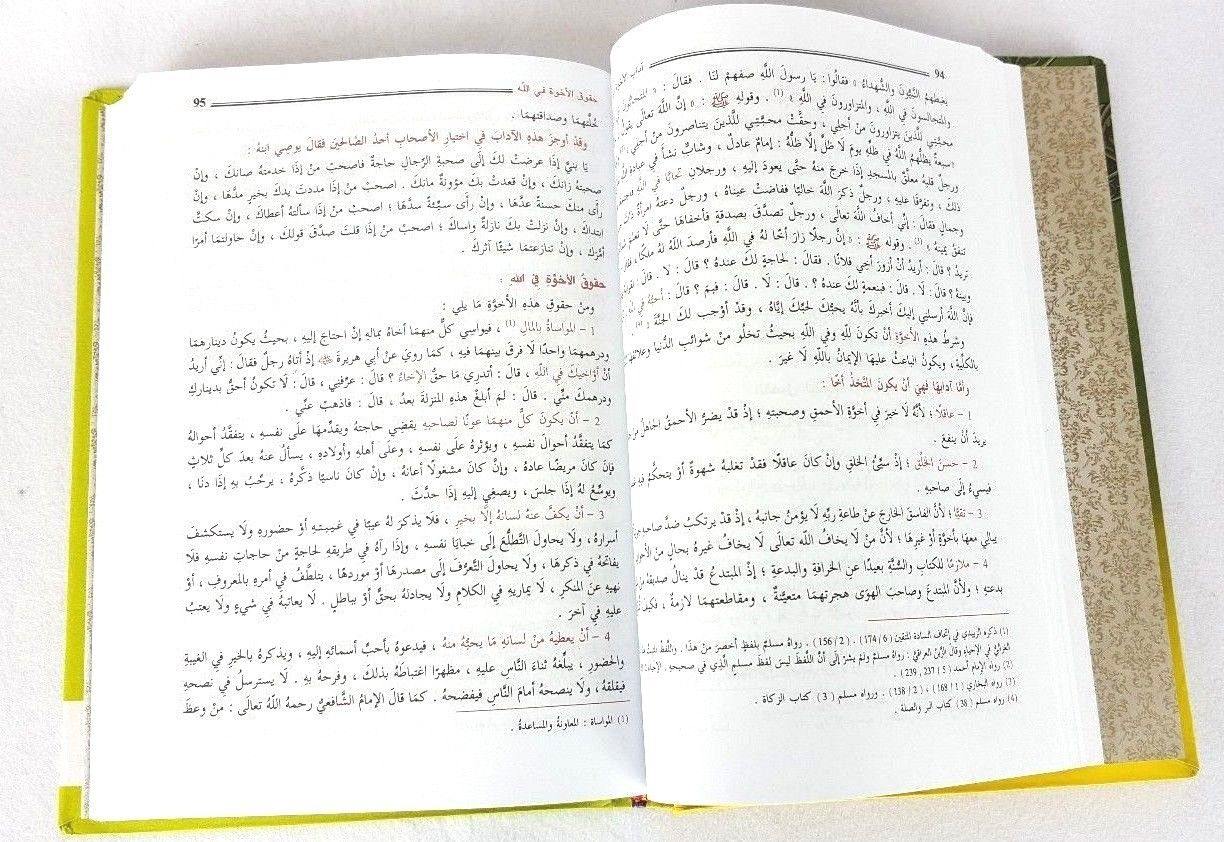 94
آداب الأخوة
يغبطهم النبيون والشهداء » فقالوا : يا رسول الله صفهم لنا . فقال : « المتحابون
والمتجالسون في الله ، والمتزاورون في الله » (1) . وقوله ﷺ : « إن الله تعالى يقول
محبتي للذين يتزاورون من أجلي ، وحقت محبتي للذين يتناصرون من أجلي
« سبعة يظلهم الله في ظله يوم لا ظل إلا ظله : إمام عادل ، وشاب نشأ في عبادة الله
ورجل قلبه معلق بالمسجد إذا خرج منه حتى يعود إليه ، ورجلان تحابا في الله
ذلك ، وتفرقا عليه ، ورجل ذكر الله خاليا ففاضت عيناه ، ورجل دعته امرأة ذات
وجمال فقال : إني أخاف الله تعالى ، ورجل تصدق بصدقة فأخفاها حتى لا تعلم
تنفق يمينه » (3) . وقوله ﷺ : « إن رجلا زار أخا له في الله فأرصد الله له ملكا ، فقال
تريد ؟ قال : أريد أن أزور أخي فلانا . فقال : لحاجة لك عنده ؟ قال : لا . قال :
وبينه ؟ قال : لا . قال : فبنعمة لك عنده ؟ قال : لا . قال : فبم ؟ قال : أحبه في الله
فإن الله أرسلني إليك أخبرك بأنه يحبك لحبك إياه ، وقد أوجب لك الجنة » (4)
وشرط هذه الأخوة أن تكون لله وفي الله بحيث تخلو من شوائب الدنيا وعلائقها
بالكلية ، ويكون الباعث عليها الإيمان بالله لا غير .
وأما آدابها فهي أن يكون المتخذ أخا :
1 - عاقلا ؛ لأنه لا خير في أخوة الأحمق وصحبته ؛ إذ قد يضر الأحمق الجاهل من
يريد أن ينفع .
2 - حسن الخلق ؛ إذ سيئ الخلق وإن كان عاقلا فقد تغلبه شهوة أو يتحكم فيه
فيسيء إلى صاحبه .
3 - تقيا ؛ لأن الفاسق الخارج عن طاعة ربه لا يؤمن جانبه ، إذ قد يرتكب ضد صاحبه
يبالي معها بأخوة أو غيرها ؛ لأن من لا يخاف الله تعالى لا يخاف غيره بحال من الأحوال
4 - ملازما للكتاب والسنة بعيدا عن الخرافة والبدعة ؛ إذ المبتدع قد ينال صديقه من
بدعته ؛ ولأن المبتدع وصاحب الهوى هجرتهما متعينة ، ومقاطعتهما لازمة ، فكيف
(1) ذكره الزبيدي في إتحاف السادة المتقين ( 6 / 174 ) . ( 2 / 156 ) . رواه مسلم بلفظ أخصر من هذا . واللفظ
العراقي في الإحياء وقال الزين العراقي : رواه مسلم ولم يشر إلى أن اللفظ ليس لفظ مسلم الذي في صحيحه
(2) رواه الإمام أحمد ( 5 / 237 ، 239 ) .
(3) رواه البخاري ( 1 / 168 ) ، ( 2 / 138 ) . ورواه مسلم ( 3 ) كتاب الزكاة .
(4) رواه مسلم ( 38 ) كتاب البر والصلة .
حقوق الأخوة في الله
95
خلتهما وصداقتهما .
وقد أوجز هذه الآداب في اختيار الأصحاب أحد الصالحين فقال يوصي ابنه :
يا بني إذا عرضت لك إلى صحبة الرجال حاجة فاصحب من إذا خدمته صانك ، وإن
صحبته زانك ، وإن قعدت بك مؤونة مانك . اصحب من إذا مددت يدك بخير مدها ، وإن
رأى منك حسنة عدها ، وإن رأى سيئة سدها ؛ اصحب من إذا سألته أعطاك ، وإن سكت
ابتداك ، وإن نزلت بك نازلة واساك ؛ اصحب من إذا قلت صدق قولك ، وإن حاولتما أمرا
أمرك ، وإن تنازعتما شيئا آثرك .
حقوق الأخوة في الله :
ومن حقوق هذه الأخوة ما يلي :
1 - المواساة بالمال (1) ، فيواسي كل منهما أخاه بماله إن احتاج إليه ، بحيث يكون دينارهما
ودرهمهما واحدا لا فرق بينهما فيه ، كما روي عن أبي هريرة ﷺ إذ أتاه رجل فقال : إني أريد
أن أؤاخيك في الله ، قال : أتدري ما حق الإخاء ؟ قال : عرفني ، قال : لا تكون أحق بدينارك
ودرهمك مني . قال : لم أبلغ هذه المنزلة بعد ، قال : فاذهب عني .
2 - أن يكون كل منهما عونا لصاحبه يقضي حاجته ويقدمها على نفسه ، يتفقد أحواله
كما يتفقد أحوال نفسه ، ويؤثره على نفسه ، وعلى أهله وأولاده ، يسأل عنه بعد كل ثلاث
فإن كان مريضا عاده ، وإن كان مشغولا أعانه ، وإن كان ناسيا ذكره ، يرحب به إذا دنا ،
ويوسع له إذا جلس ، ويصغي إليه إذا حدث .
3 - أن يكف عنه لسانه إلا بخير ، فلا يذكر له عيبا في غيبته أو حضوره ولا يستكشف
أسراره ، ولا يحاول التطلع إلى خبايا نفسه ، وإذا رآه في طريقه لحاجة من حاجات نفسه فلا
يفاتحه في ذكرها ، ولا يحاول التعرف إلى مصدرها أو موردها ، يتلطف في أمره بالمعروف ، أو
نهيه عن المنكر ، لا يماريه في الكلام ولا يجادله بحق أو بباطل . لا يعاتبه في شيء ولا يعتب
عليه في آخر .
4 - أن يعطيه من لسانه ما يحبه منه ، فيدعوه بأحب أسمائه إليه ، ويذكره بالخير في الغيبة
والحضور ، يبلغه ثناء الناس عليه ، مظهرا اغتباطه بذلك ، وفرحه به . لا يسترسل في نصحه
فيقلقه ، ولا ينصحه أمام الناس فيفضحه . كما قال الإمام الشافعي رحمه الله تعالى : من وعظ
(1) المواساة : المعاونة والمساعدة .